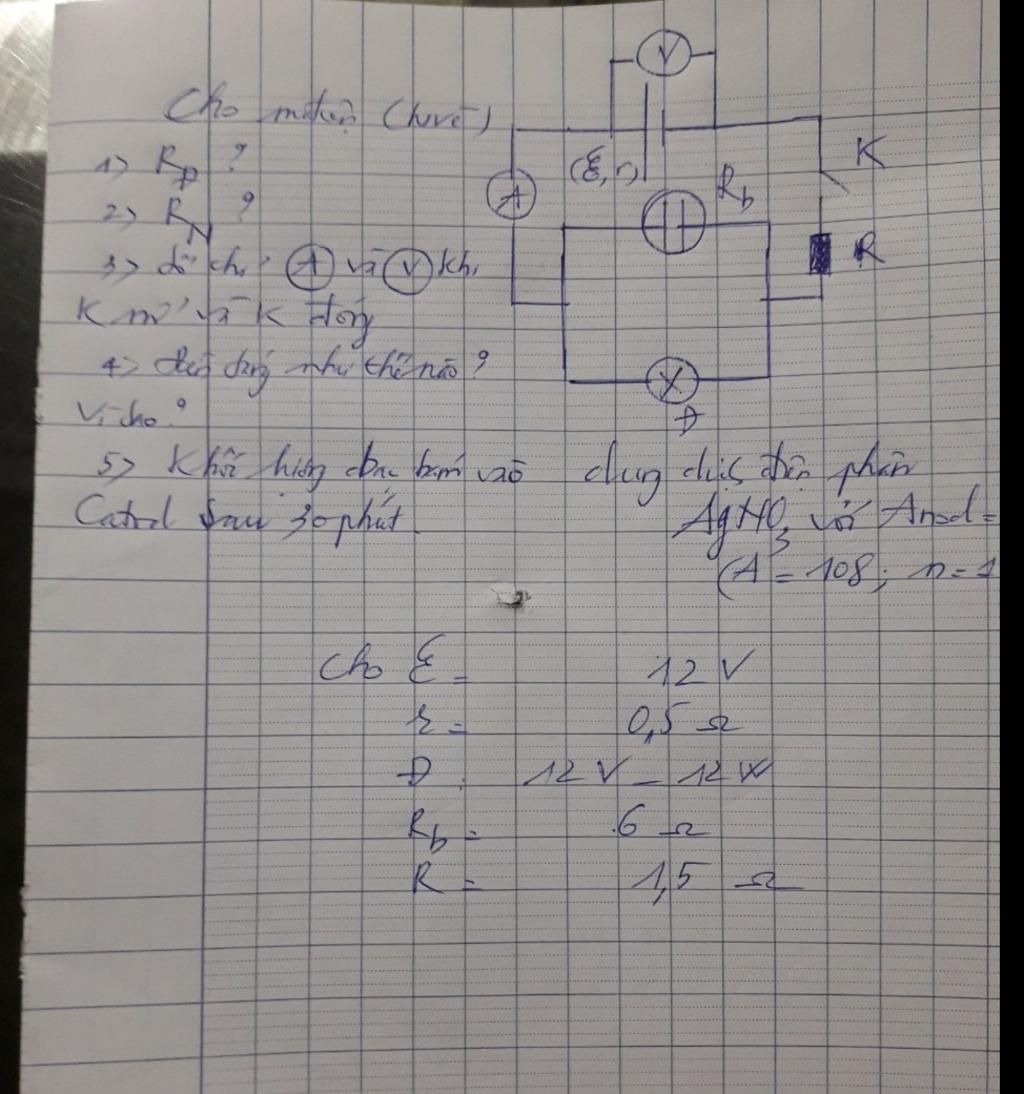 Cho mđiện (hvẽ)
1) R_Đ ?
2) R_N ?
3) Số chỉ A và V khi
K mở và K đóng
4) đèn sáng như thế nào ?
Vì sao ?
5) Khối lượng bạc bám vào
Catod sau 30 phút.
V
A
(ℰ, r)
R_b
K
R
Đ
dung dịch điện phân
AgNO₃ với Anod =
(A = 108; n = 1
Cho ℰ = 12 V
r = 0,5 Ω
Đ : 12 V - 12 W
R_b = 6 Ω
R = 1,5 Ω